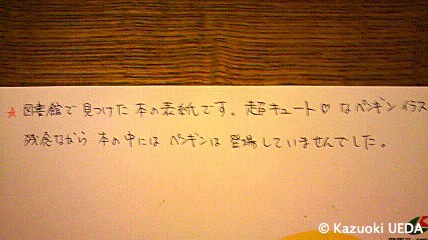 ☆ 図書館で見つけた本の表紙です。超キュート♡なペンギンイラス
残念ながら本の中にはペンギンは登場していませんでした。
© Kazuoki UEDA